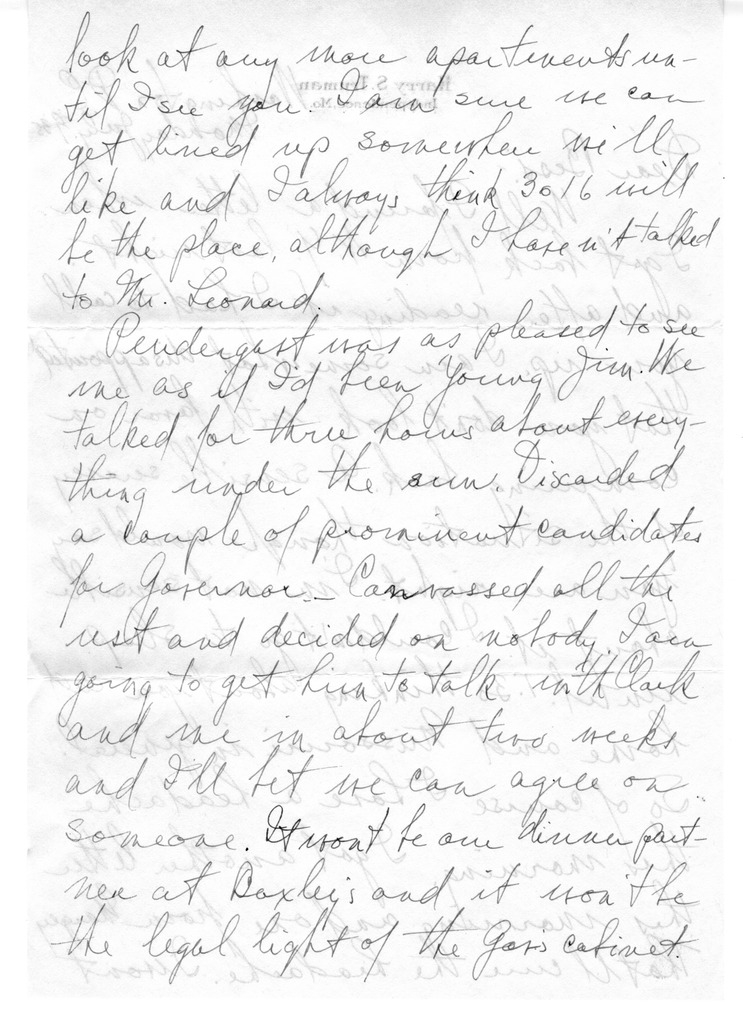 look at any more apartments un-
til I see you. I am sure we can
get lined up somewhere we'll
like and I always think 3016 will
be the place, although I haven't talked
to Mr. Leonard.
Pendergast was as pleased to see
me as if I'd been Young Jim. We
talked for three hours about every-
thing under the sun. Discarded
a couple of prominent candidates
for Governor - Canvassed all the
rest and decided on nobody. I am
going to get him to talk with Clark
and me in about two weeks
and I'll bet we can agree on
someone. It wont be our dinner part-
ner at Baxley's and it won't be
the legal light of the Gov's cabinet.